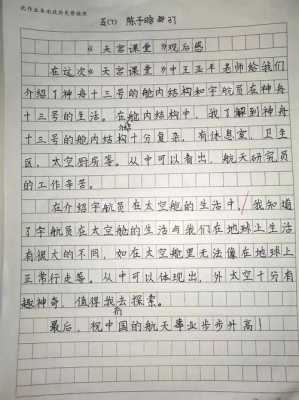 五(7) 陈子晗 37
《天宫课堂》观后感
在这次《天宫课堂》中王亚平老师给我们
介绍了神舟十三号的舱内结构和宇航员在神舟
十三号的生活。在舱内结构中,我了解到神舟
十三号的舱内结构十分复杂,有休息室、卫生
区、太空厨房等。从中可以看出,航天研究员
的工作辛苦。
在介绍宇航员在太空舱的生活中,我知道
了宇航员在太空舱的生活与我们在地球上生活
有很大的不同,如在太空舱里无法像在地球上
正常行走等。从中可以体现出,外太空十分有
趣神奇,值得我去探索。
最后,祝中国的航天事业步步升高!